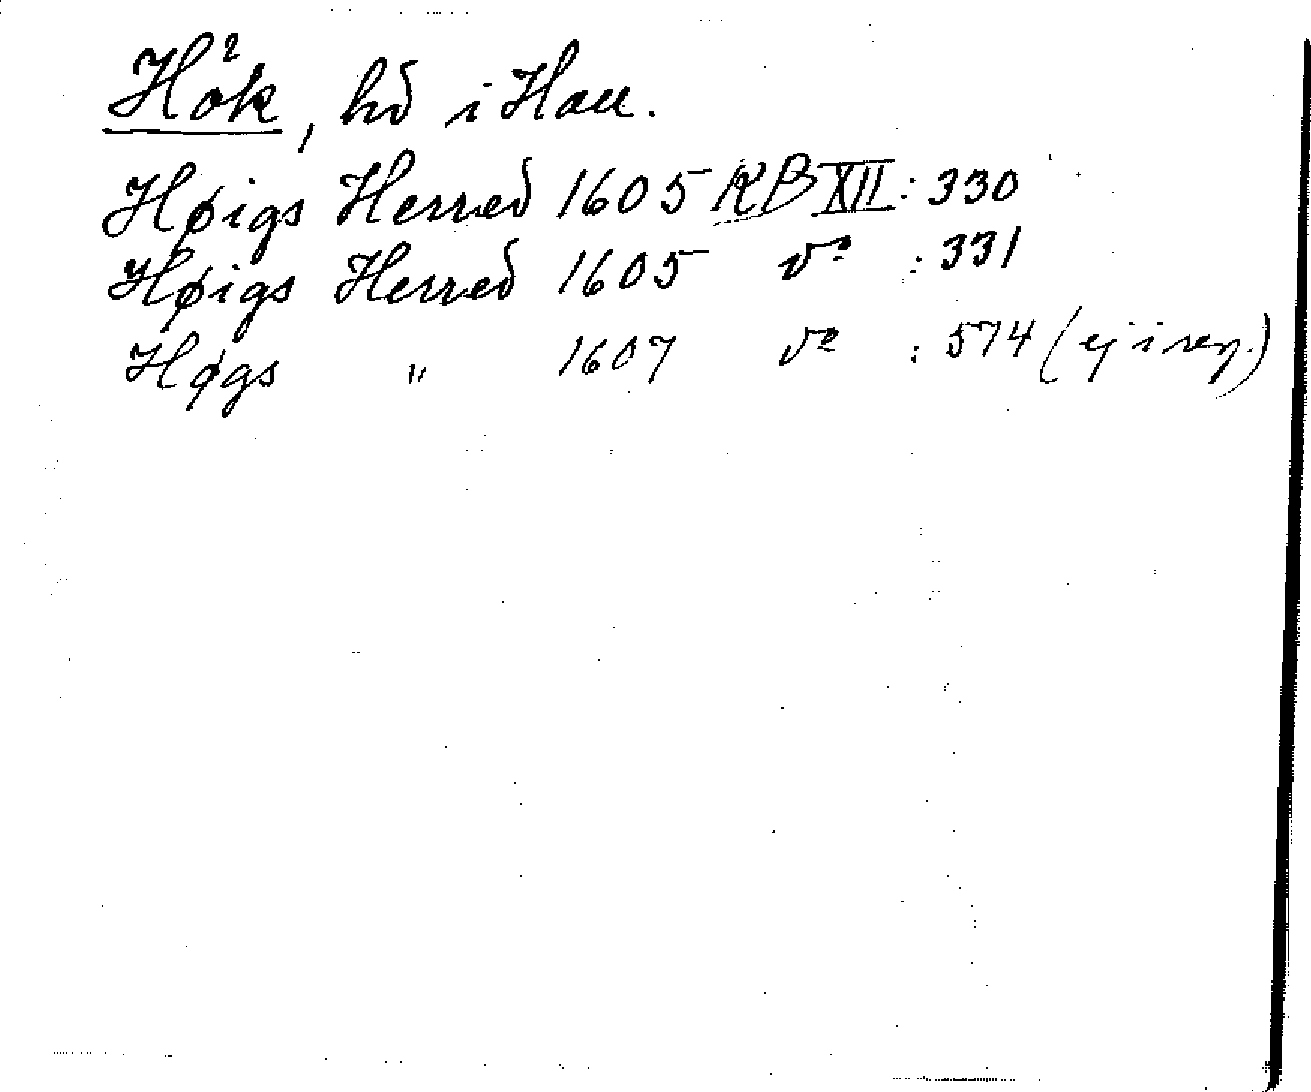 Hök, hd i Hall.
Høigs Herred 1605 KB XII: 330
Høigs Herred 1605 do : 331
Høgs " 1607 do : 574 (ej i reg.)